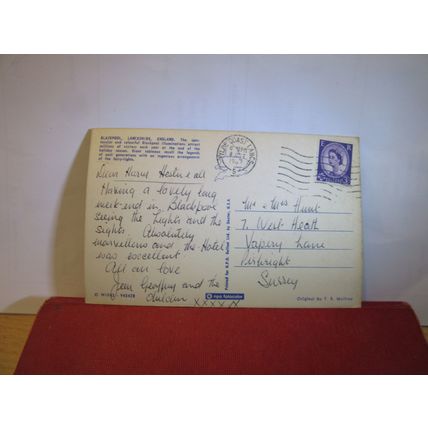 BLACKPOOL, LANCASHIRE, ENGLAND. The spec-
tacular and colourful Blackpool Illuminations attract
millions of visitors each year at the end of the
holiday season. Gnome tableaux recall the legends
of past generations with an ingenious arrangement
of the fairy-lights.
Dear Harry & all
Having a lovely long
week-end in Blackpool
seeing the Lights and the
sights. Absolutely
marvellous and the Hotel
was excellent.
All our love
Jean Geoffrey and the
children
XXXXX
FYLDE COAST LANCS
Mr & Mrs Hunt
7, West Heath
Vapery Lane
Pirbright
Surrey
Printed for N.P.O. Belfast Ltd. by Dexter, U.S.A.
© npo fotocolor
Original by T. S.